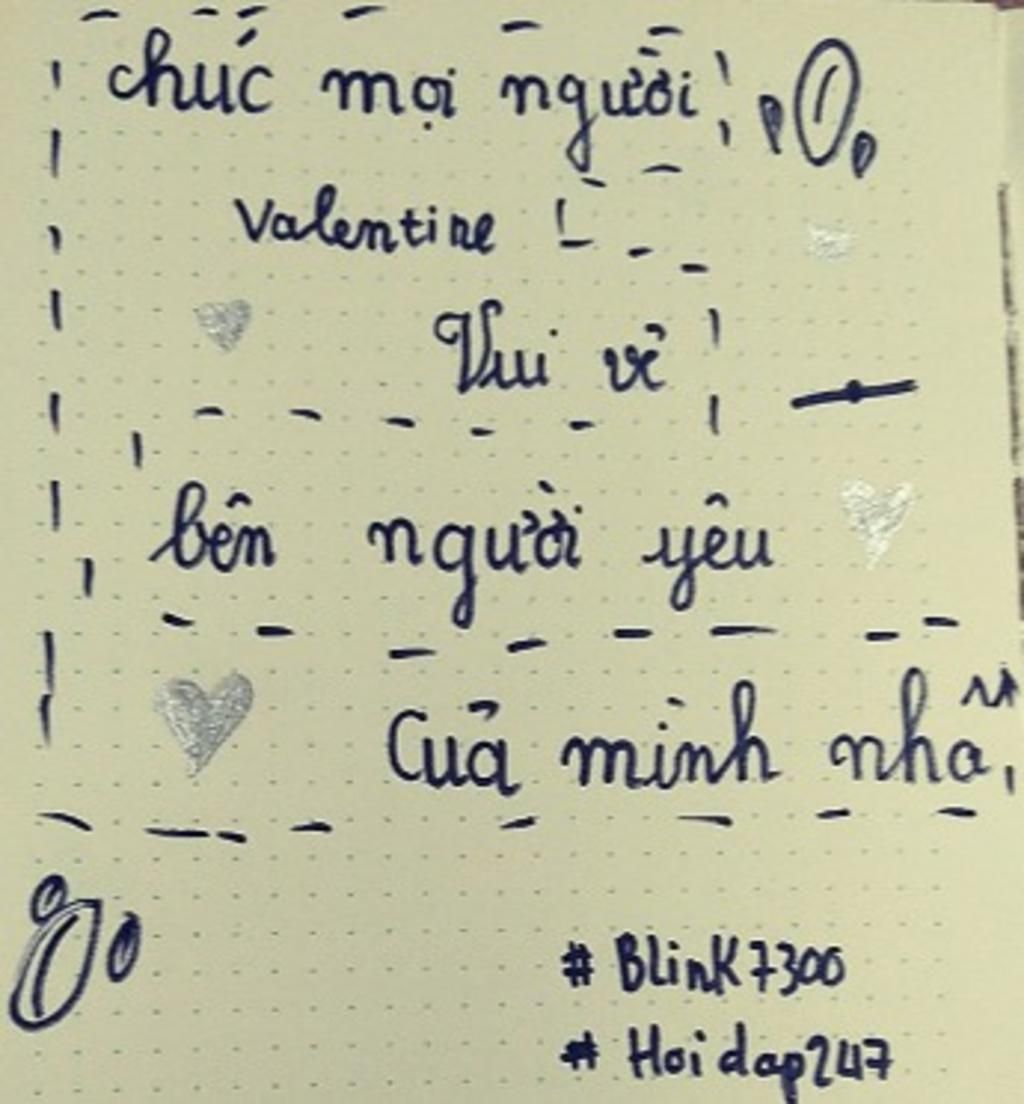 chúc mọi người
Valentine !
Vui vẻ
bên người yêu
Của mình nha
# Blink7300
# Hoidap247